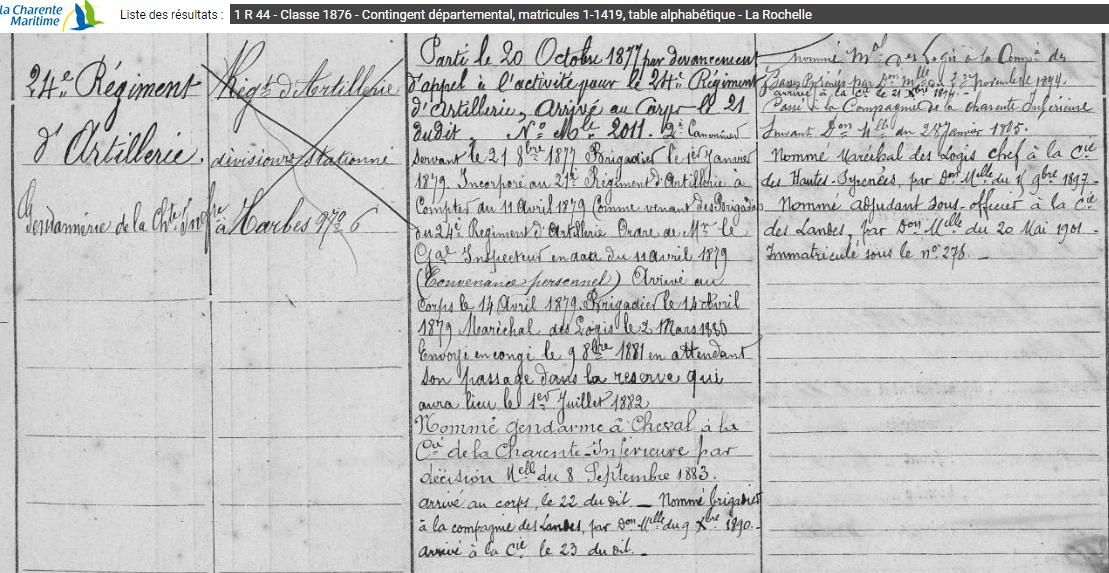 La Charente
Maritime
Liste des résultats :
1 R 44 - Classe 1876 - Contingent départemental, matricules 1-1419, table alphabétique - La Rochelle
24e Régiment
d'Artillerie.
Gendarmerie de la Chte Infre
Régt d'Artillerie
divisionre stationné
à Tarbes 970 6
Parti le 20 Octobre 1877 par devancement
d'appel à l'activité pour le 24e Régiment
d'Artillerie, Arrivé au Corps le 21
dudit, No Mle 2011. 2e Canonnier
servant le 21 8bre 1877 Brigadier le 1er Janvier
1879. Incorporé au 21e Régiment d'Artillerie à
Compter du 11 Avril 1879 Comme venant des Brigadiers
du 24e Régiment d'Artillerie Ordre de Mr le
Gal Inspecteur en date du 11 avril 1879
(Convenance personnel) Arrivé au
corps le 14 Avril 1879. Brigadier le 14 Avril
1879 Maréchal des Logis le 2 Mars 1880
Envoyé en congé le 9 8bre 1881 en attendant
son passage dans la réserve qui
aura lieu le 1er Juillet 1882
Nommé gendarme à Cheval à la
Cie de la Charente-Inférieure par
décision Melle du 8 Septembre 1883.
arrivé au corps, le 22 du dit _ Nommé brigadier
à la compagnie des Landes, par Don Melle du 9 Xbre 1890._
arrivé à la Cie le 23 du dit._
Nommé Mal des Logis à la Comp. des
Basses Pyrénées par Don Mlle du 3 Novembre 1894.
arrivé à la Cie le 21
Passé à la Compagnie de la Charente Inférieure
Suivant Don Mlle du 28 Janvier 1895.
Nommé Maréchal des Logis chef à la Cie
des Hautes-Pyrénées, par Don Melle du 9bre 1897._
Nommé adjudant sous-officier à la Cie
des Landes, par Don Melle du 20 Mai 1901._
Immatriculé sous le no 276._